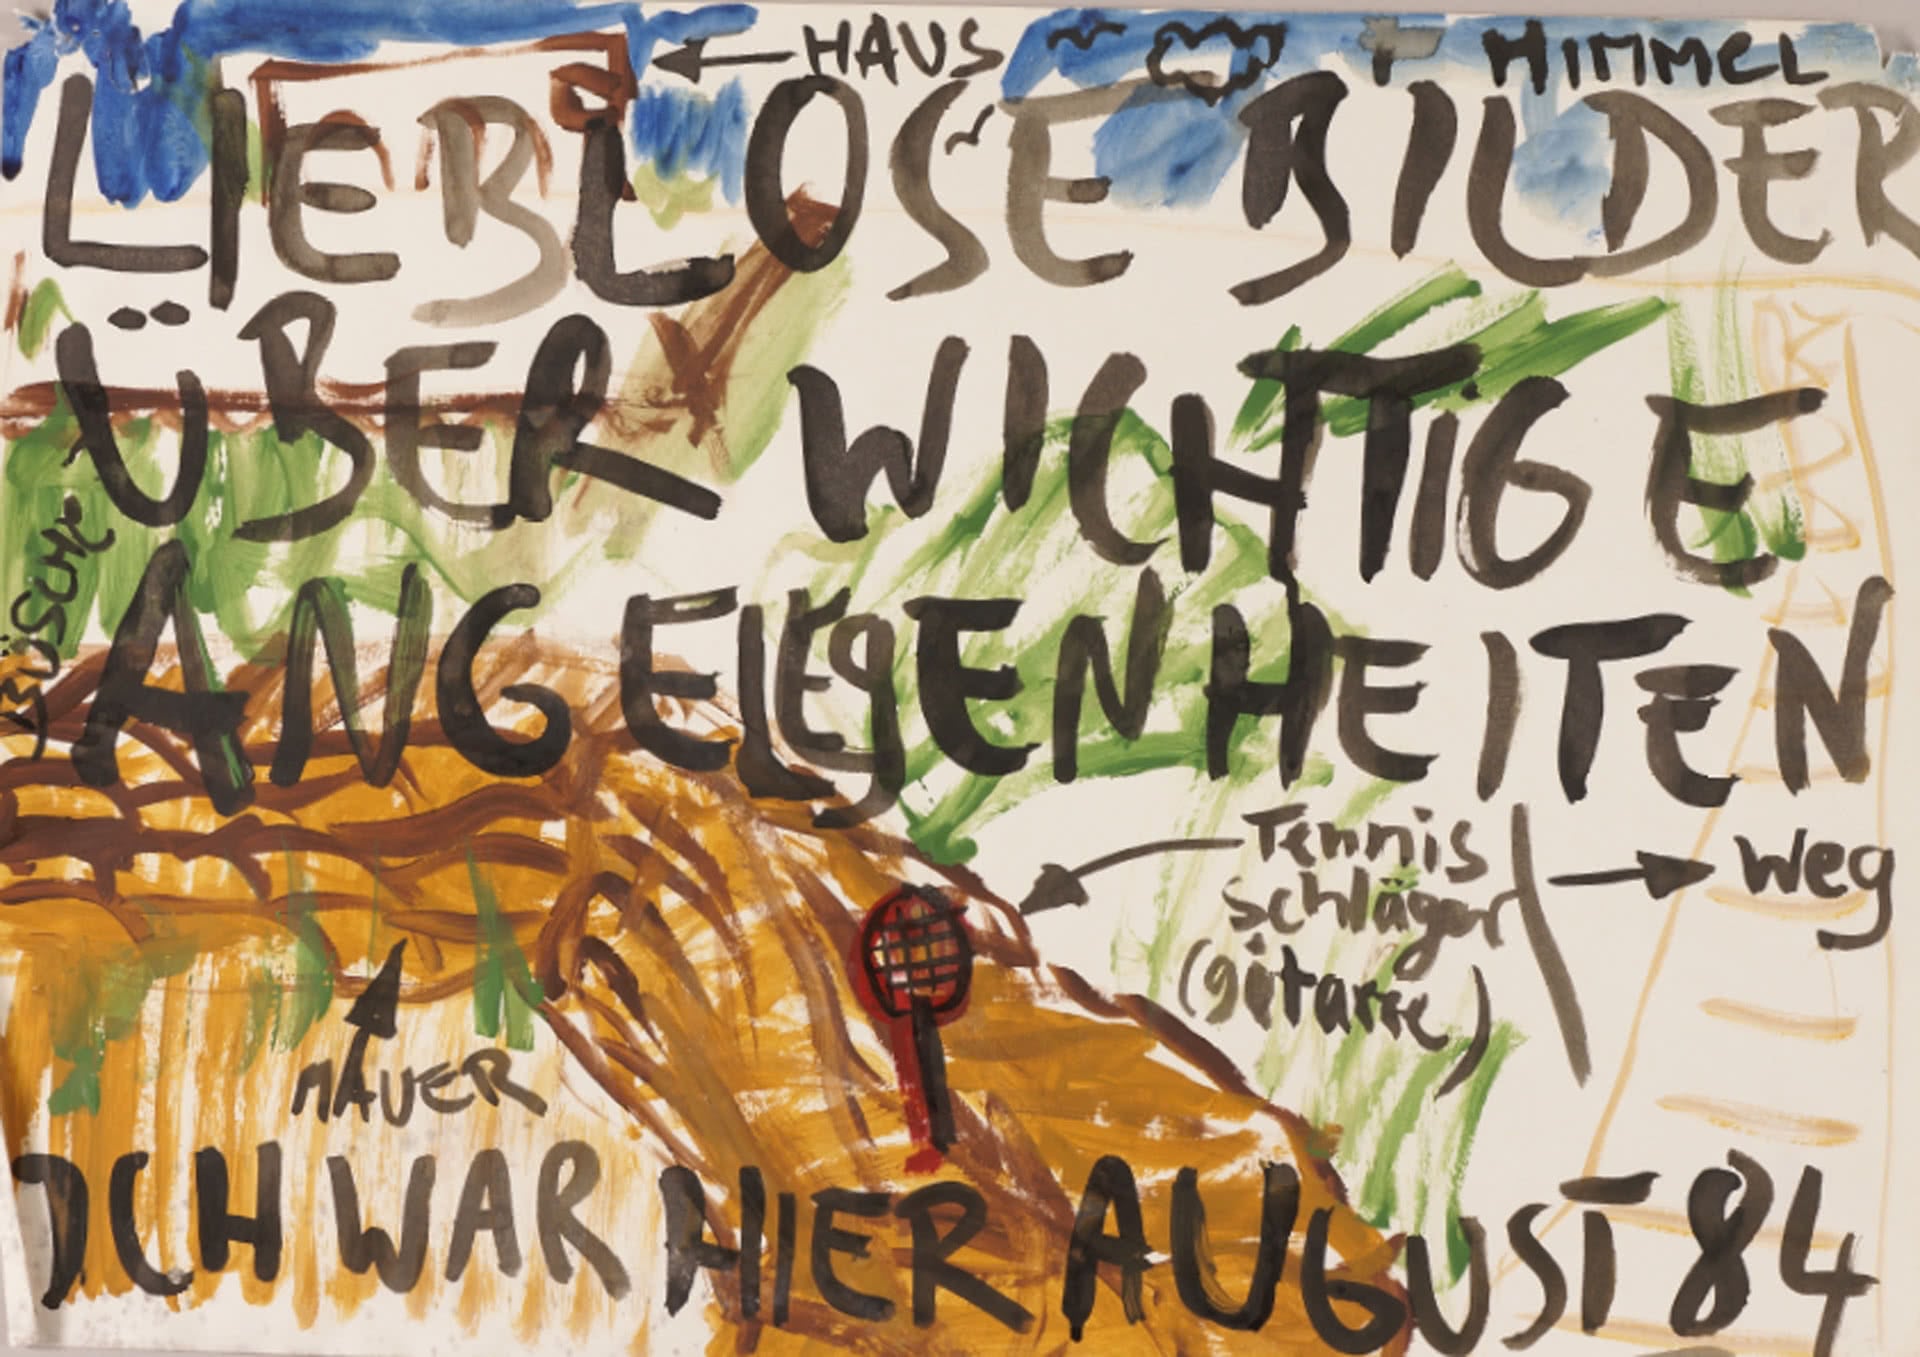 HAUS
HIMMEL
LIEBLOSE BILDER
ÜBER WICHTIGE
BÜSCHE
ANGELEGENHEITEN
Tennis
schläger
(gitarre)
Weg
MAUER
ICH WAR HIER AUGUST 84